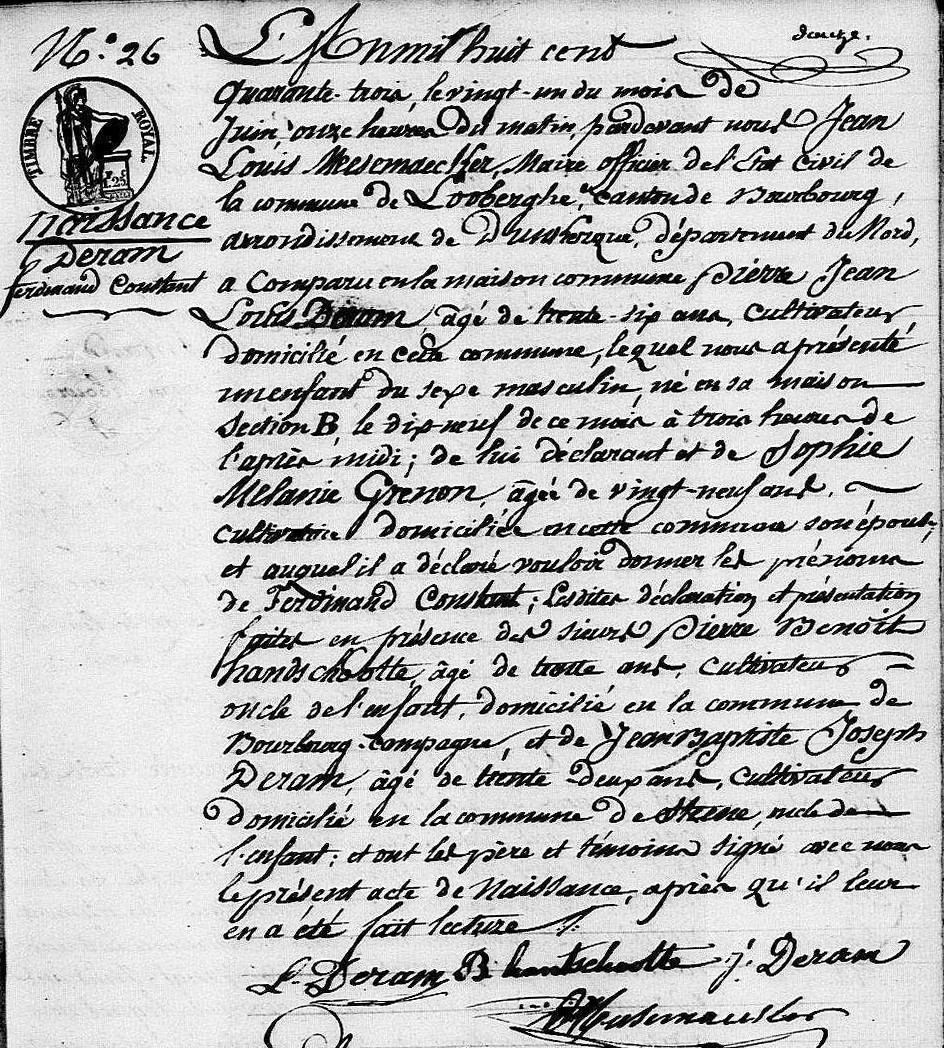 N.° 26
TIMBRE ROYAL
Naissance
Deram
ferdinand Constant
douze.
L'An mil huit cent
Quarante-trois, le vingt-un du mois de
Juin, onze heures du matin, pardevant nous Jean
Louis Mesemaecker, Maire officier de l'Etat Civil de
la commune de Looberghe, canton de Bourbourg,
arrondissement de Dunkerque, département du Nord,
a Comparu en la maison commune Pierre Jean
Louis Deram, âgé de trente-six ans, cultivateur
domicilié en cette commune, lequel nous a présenté
un enfant du sexe masculin, né en sa maison
section B, le dix neuf de ce mois à trois heures de
l'après midi; de lui déclarant et de Sophie
Mélanie Grenon, âgée de vingt-neuf ans,
cultivatrice domiciliée en cette commune son épouse;
et auquel il a déclaré vouloir donner les prénoms
de Ferdinand Constant; Lesdites déclaration et présentation
faites en présence des sieurs Pierre Benoit
handschootte, âgé de trente ans, cultivateur
oncle de l'enfant, domicilié en la commune de
Bourbourg-campagne, et de Jean Baptiste Joseph
Deram, âgé de trente deux ans, cultivateur
domicilié en la commune de Steene, oncle de
l'enfant; et ont les père et témoins signé avec nous
le présent acte de Naissance, après qu'il leur
en a été fait lecture /.
L. Deram B hantschootte j. Deram